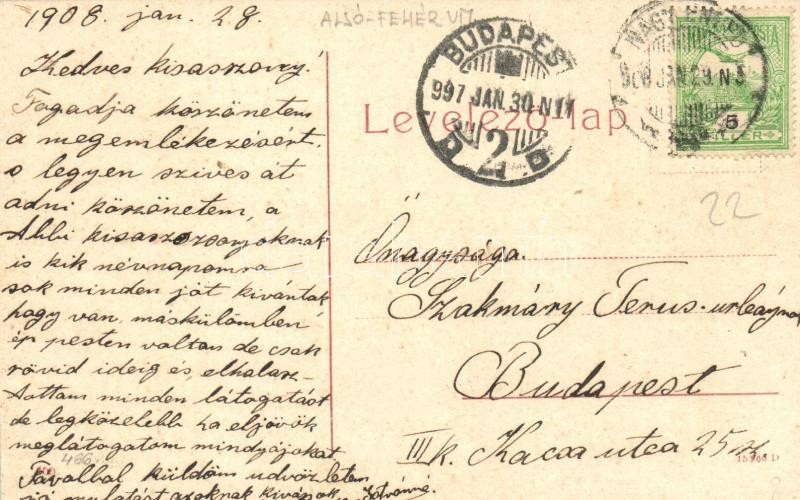 1908. jan. 28.
ALSÓ-FEHÉR VM
Kedves kisasszony!
Fogadja köszönetem
a megemlékezésért.
s legyen szives át
adni köszönetem, a
Abbi kisaszszonyoknak
is kik névnapomra
sok minden jót kivántak
hogy van, máskülömben
ép pesten voltam de csak
rövid ideig és, elhalasz-
tottam minden látogatást
de legközelebb ha eljövök
meglátogatom mindnyájokat
Távolbol küldöm üdvözletem
jó mulatást azoknak kivánok
Istvánné.
466
Levelező-lap
BUDAPEST
997 JAN. 30. N 11
2
NAGY-ENYED
908 JAN. 29. N 5
5
22
Önagysága.
Szakmáry Terus-urleánynak
Budapest
III k. Kacsa utca 25 sz.